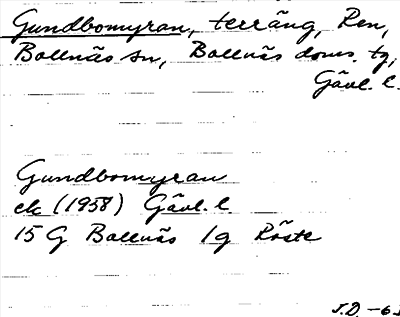 Gundbomyran, terräng, Ren,
Bollnäs sn, Bollnäs doms. tg,
Gävl. l.
Gundbomyran
ek (1958) Gävl. l.
15 G Bollnäs 1g Röste
J.D. -6